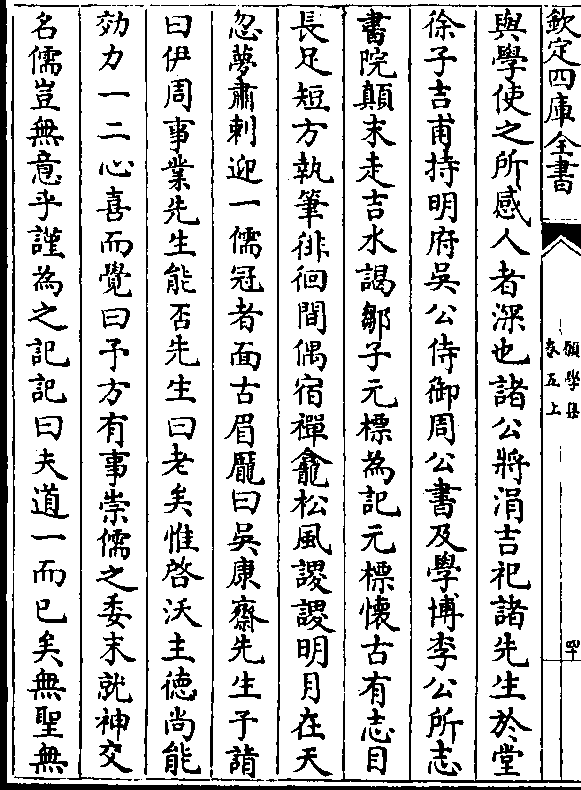 欽定四庫全書
願學集
卷五上
與學使之所感人者深也諸公將涓吉祀諸先生於堂
徐子吉甫持明府吳公侍御周公書及學博李公所志
書院顛末走吉水謁鄒子元標為記元標懷古有志目
長足短方執筆徘徊間偶宿禪龕松風謖謖明月在天
忽夢肅刺迎一儒冠者面古眉厖曰吳康齋先生予請
曰伊周事業先生能否先生曰老矣惟啓沃主德尚能
効力一二心喜而覺曰予方有事崇儒之委未就神交
名儒豈無意乎謹為之記記曰夫道一而已矣無聖無